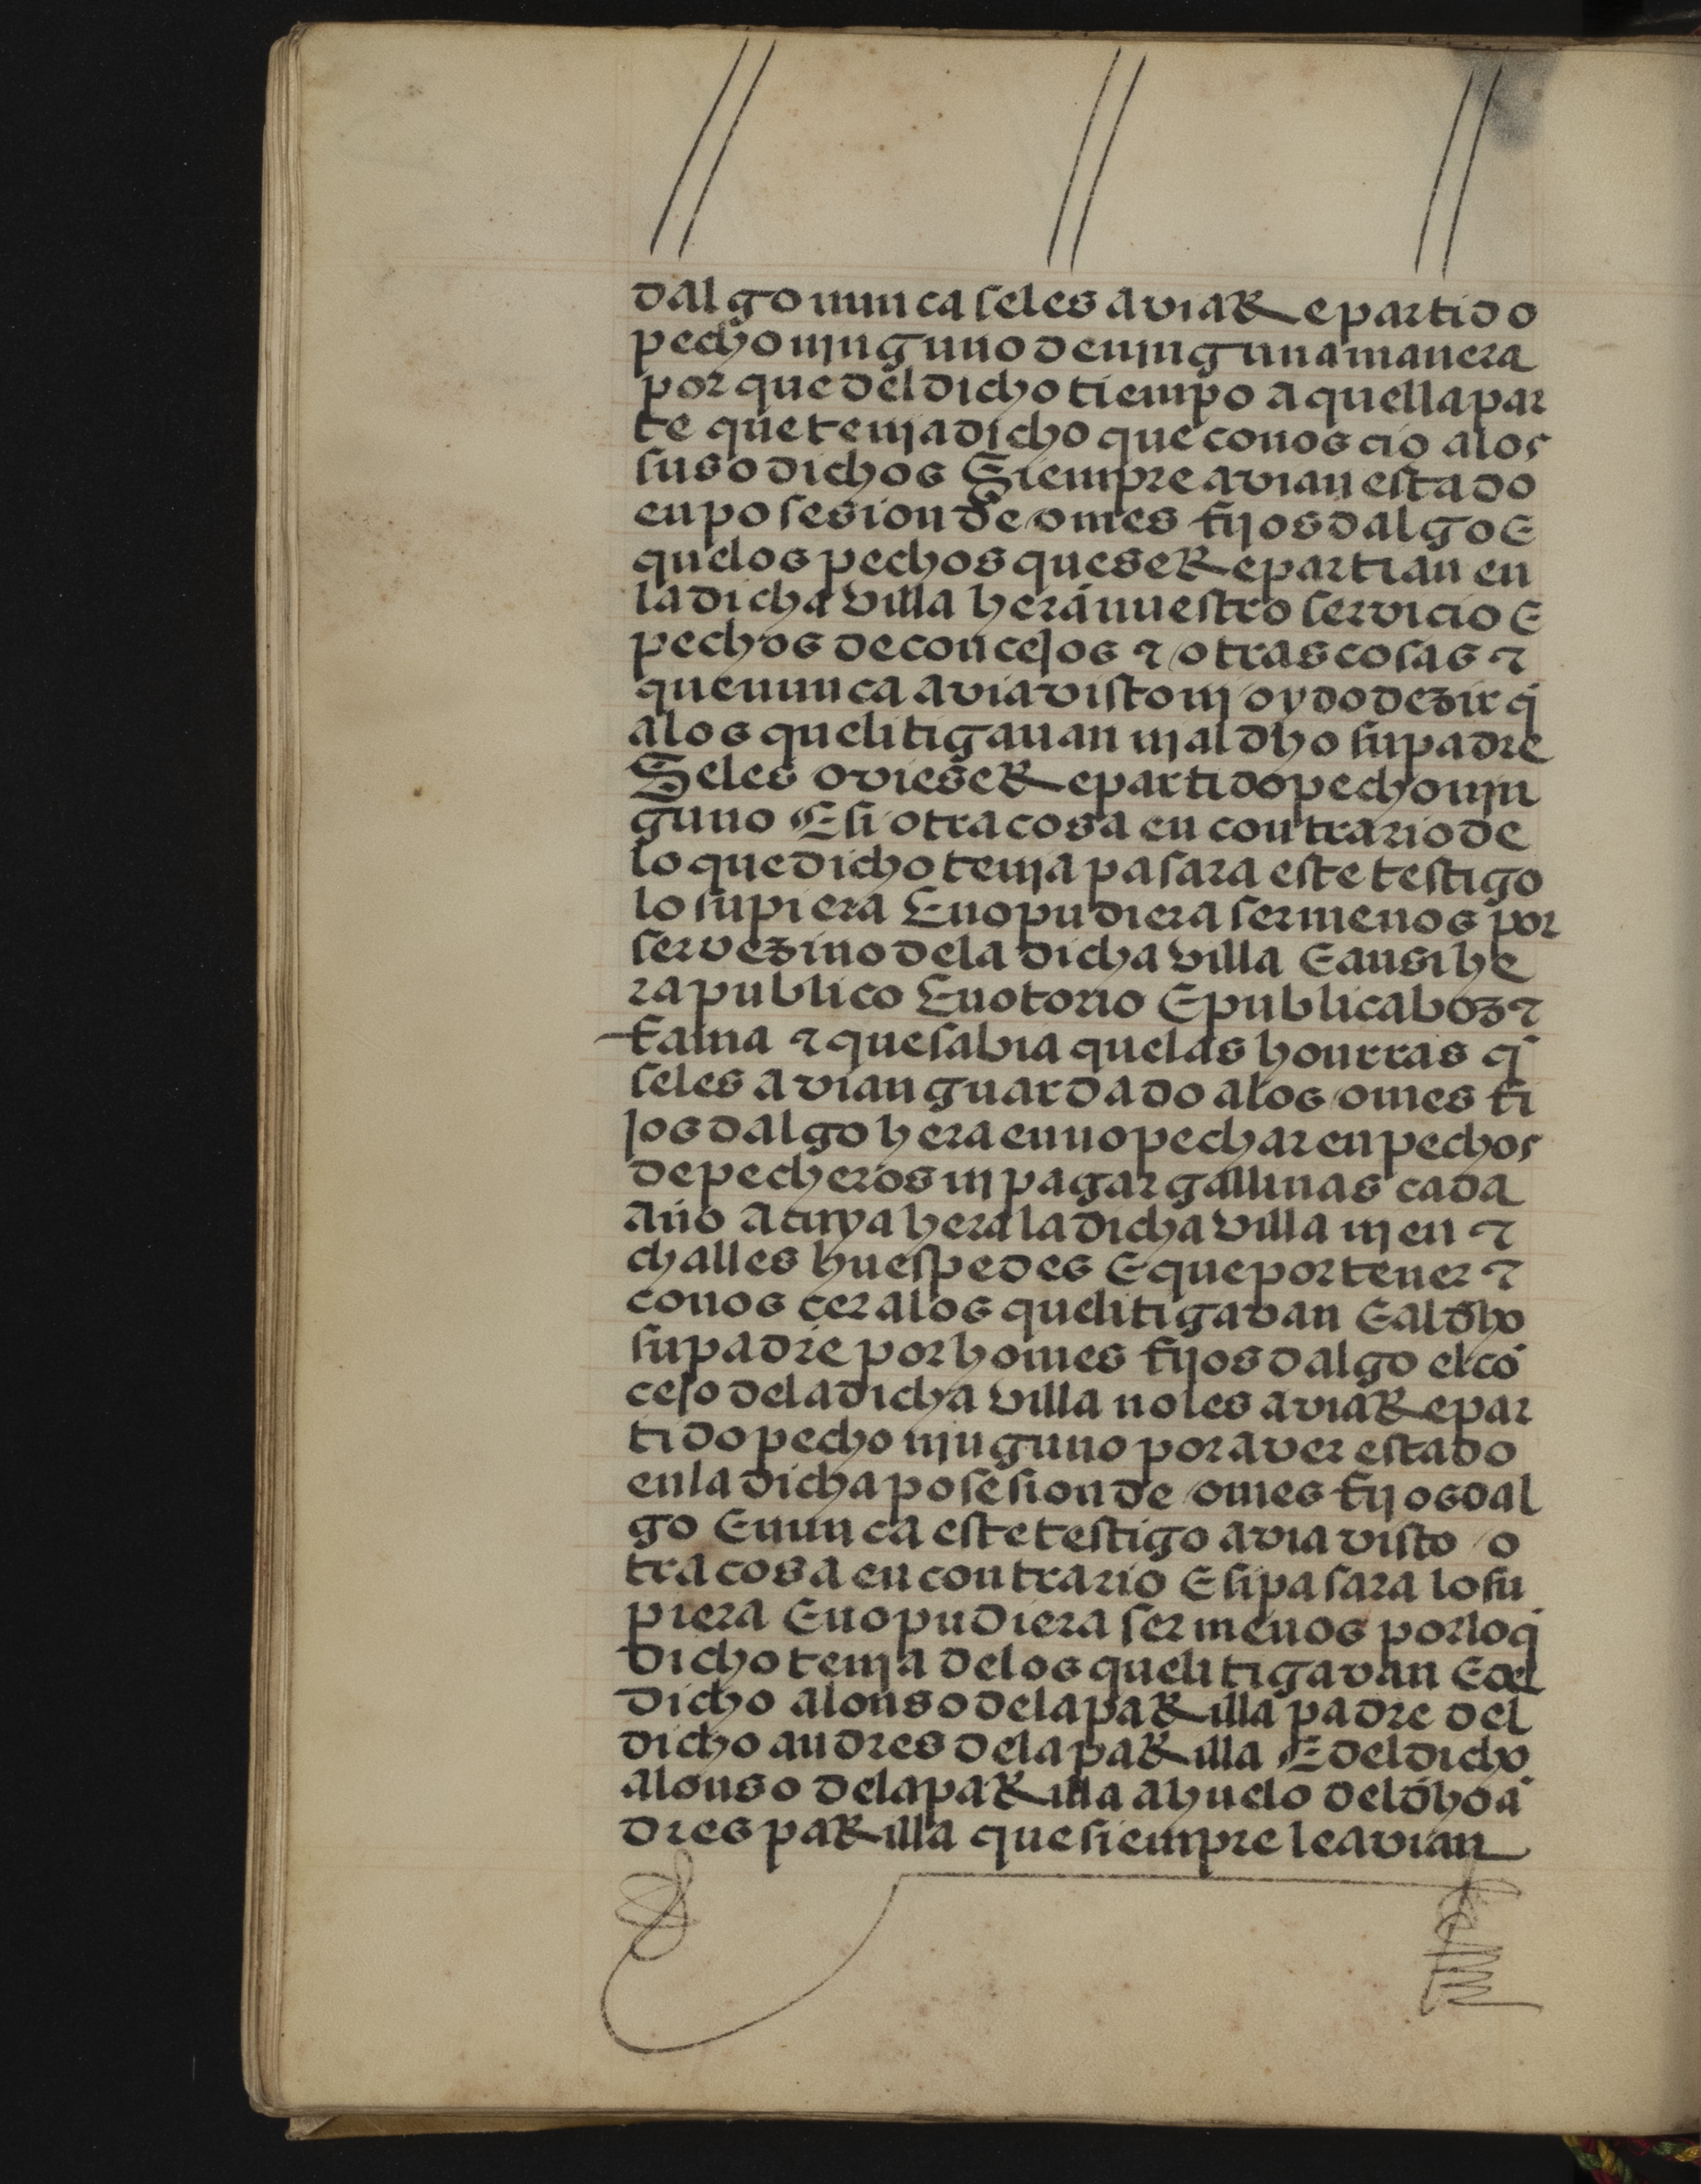 dalgo nunca seles avia Repartido
pecho njnguno de njnguna manera
por que del dicho tiempo a quella par
te que tenja dicho que conoscio alos
suso dichos Siempre avian estado
en posesion de omes fijos dalgo E
que los pechos que se Repartian en
la dicha villa hera nuestro servicio E
pechos de concejos ⁊ otras cosas ⁊
que nunca avia visto nj oydo dezir q̄
alos que litigauan nj al dho su padre
Seles oviese Repartido pecho njn
guno E si otra cosa en contrario de
lo que dicho tenja pasara este testigo
lo supiera E no pudiera ser menos por
ser vezino dela dicha villa E ansi he
ra publico E notorio E publica boz ⁊
fama ⁊ que sabia que las honrras q̄
seles avian guardado alos omes fi
jos dalgo hera en no pechar en pechos
de pecheros nj pagar gallinas cada
año a cuya hera la dicha villa nj en ⁊
challes huespedes E que por tener ⁊
conoscer alos que litigavan E al dho
su padre por homes fijos dalgo el cō
cejo dela dicha villa no les avia Repar
tido pecho njnguno por aver estado
en la dicha posesion de omes fijos dal
go E nunca este testigo avia visto o
tra cosa en contrario E si pasara lo su
piera E no pudiera ser menos por lo q̄
dicho tenja delos que litigavan E del
dicho alonso dela paRilla padre del
dicho andres dela paRilla E del dicho
alonso dela paRilla ahuelo del dho ā
dres paRilla que siempre le avian